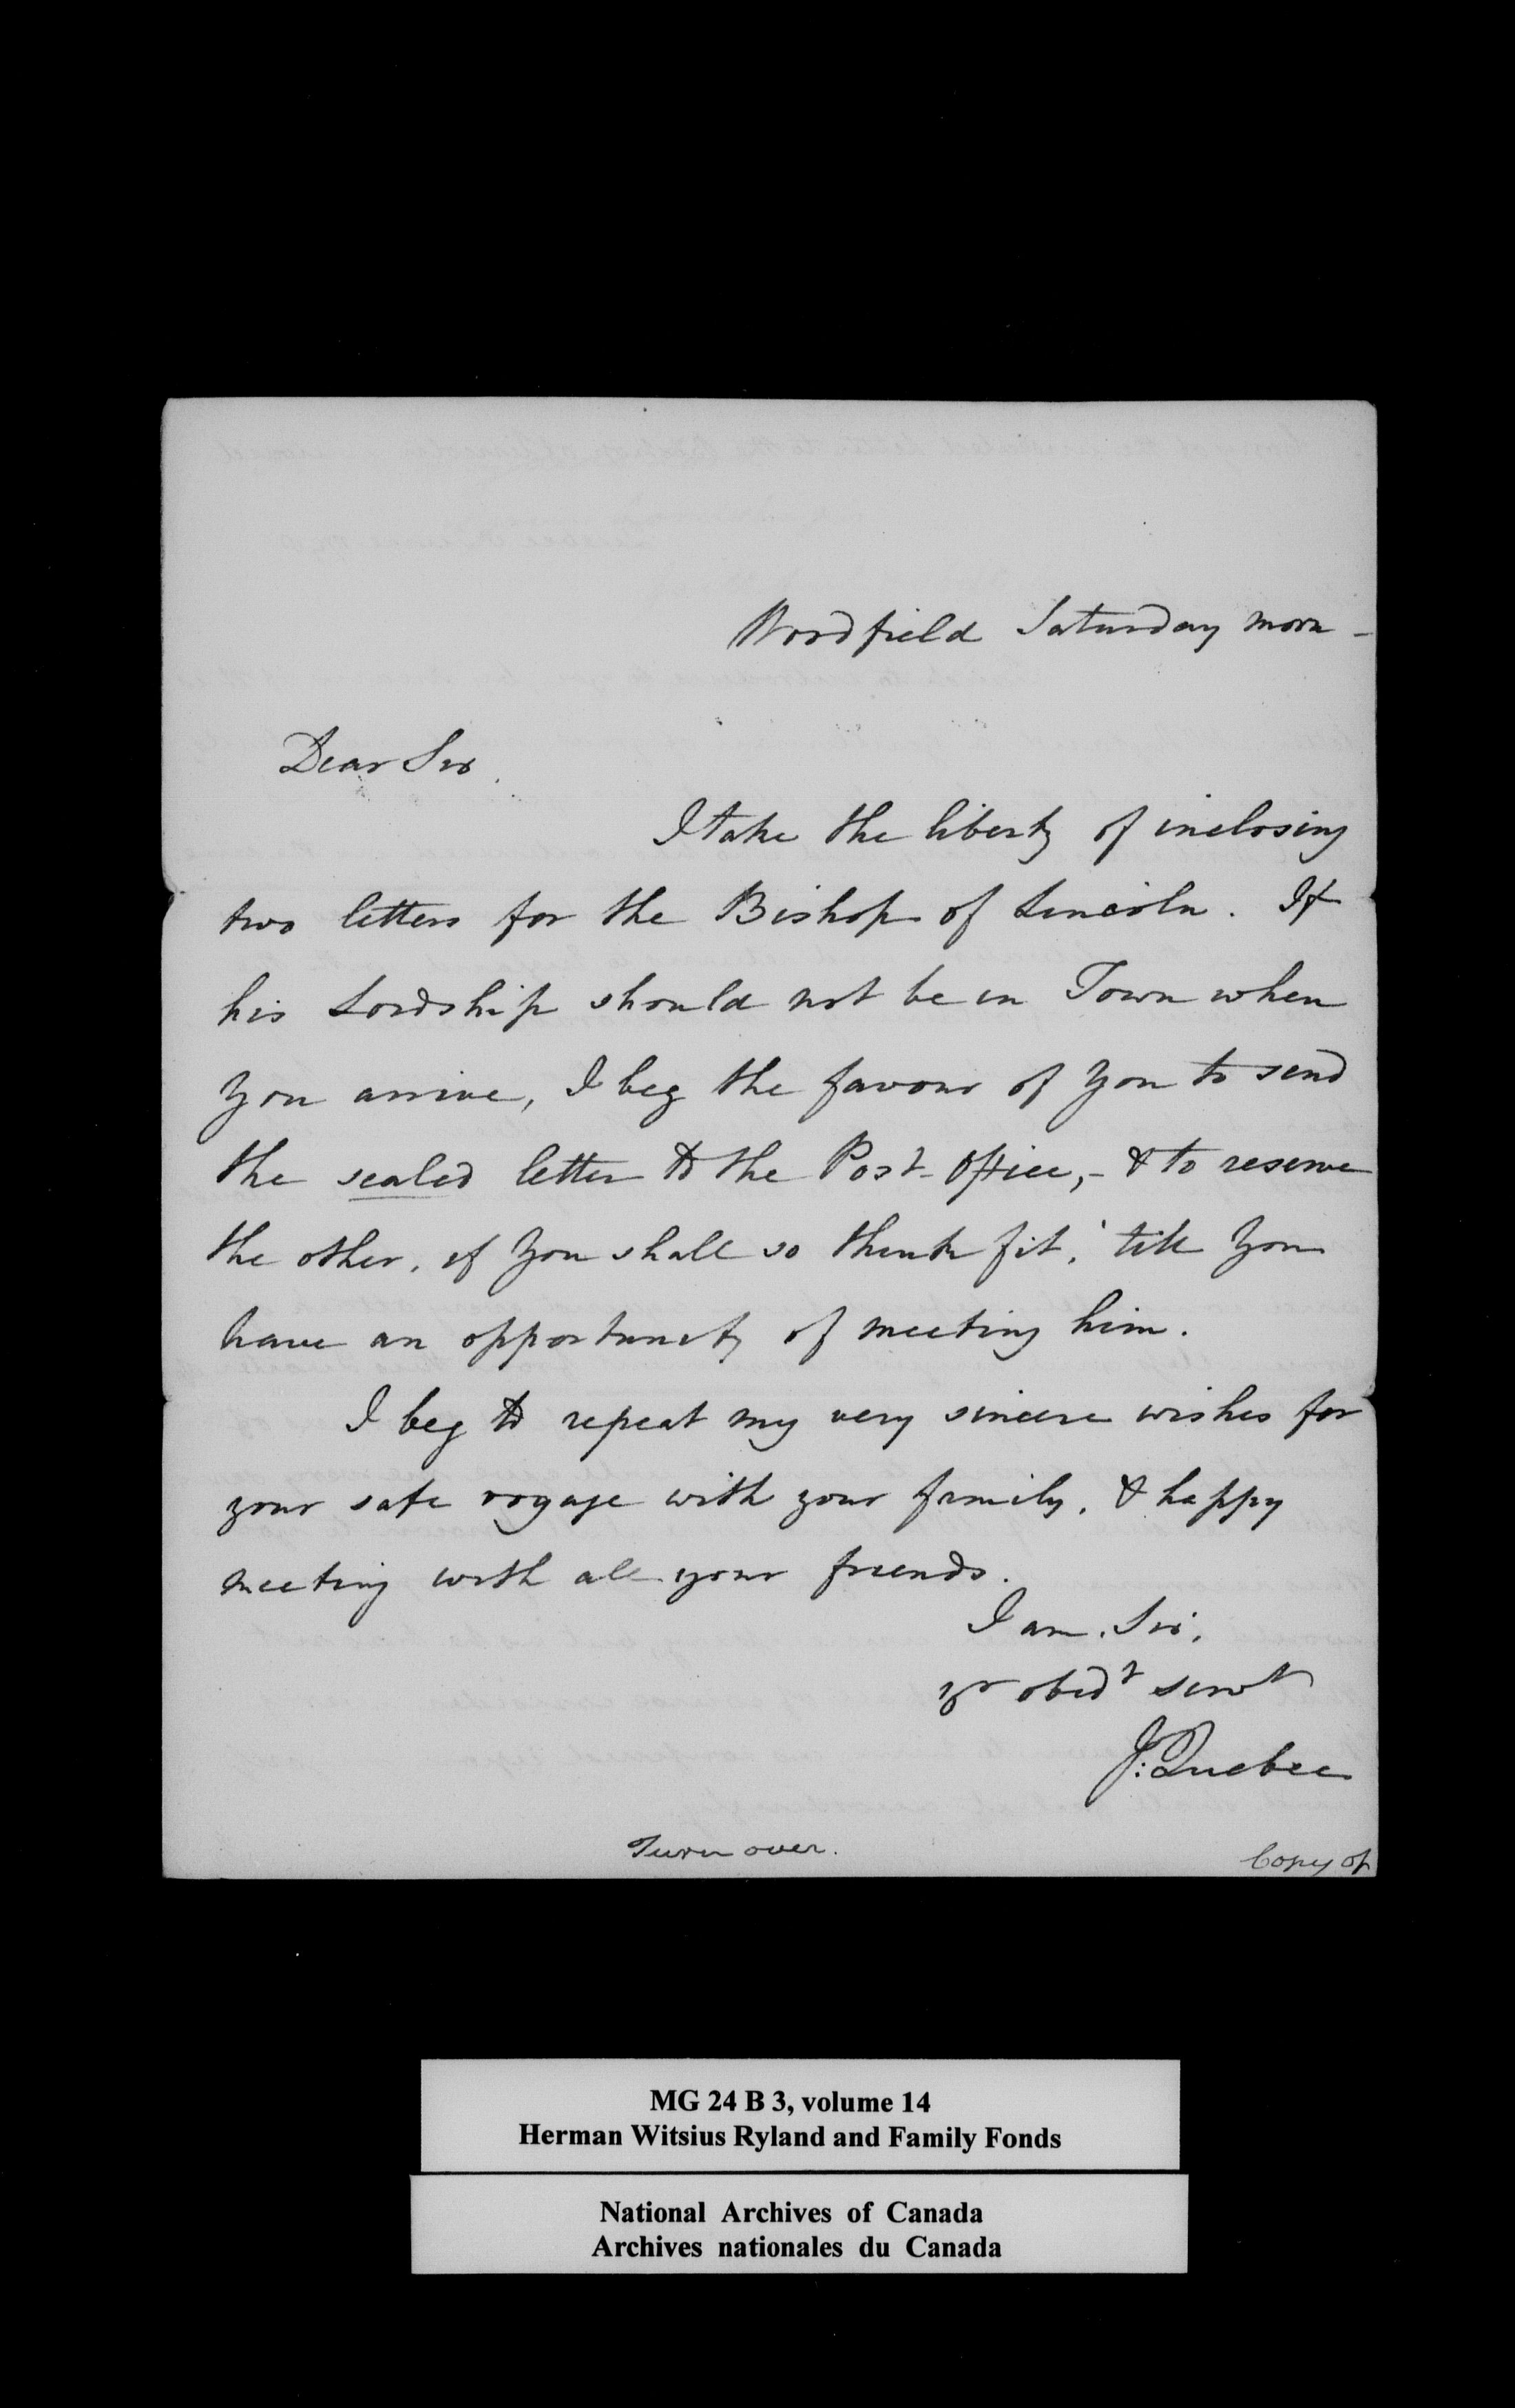 Woodfield Saturday morn -
Dear Sir
I take the liberty of inclosing
two letters for the Bishop of Lincoln. If
his Lordship should not be in Town when
you arrive, I beg the favour of you to send
the sealed letter to the Post-Office,- & to reserve
the other, if you shall so think fit, 'till you
have an opportunity of meeting him.
I beg to repeat my very sincere wishes for
your safe voyage with your family, & happy
meeting with all your friends.
I am, Sir,
yr obedt servt
J: Quebec
Turn over.
Copy of
MG 24 B 3, volume 14
Herman Witsius Ryland and Family Fonds
National Archives of Canada
Archives nationales du Canada